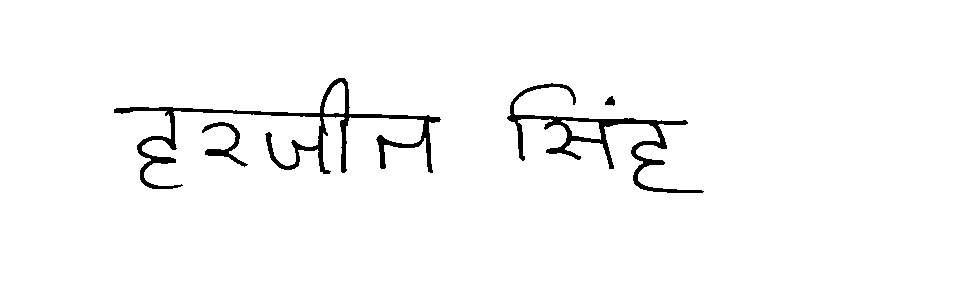 हरजीत सिंह